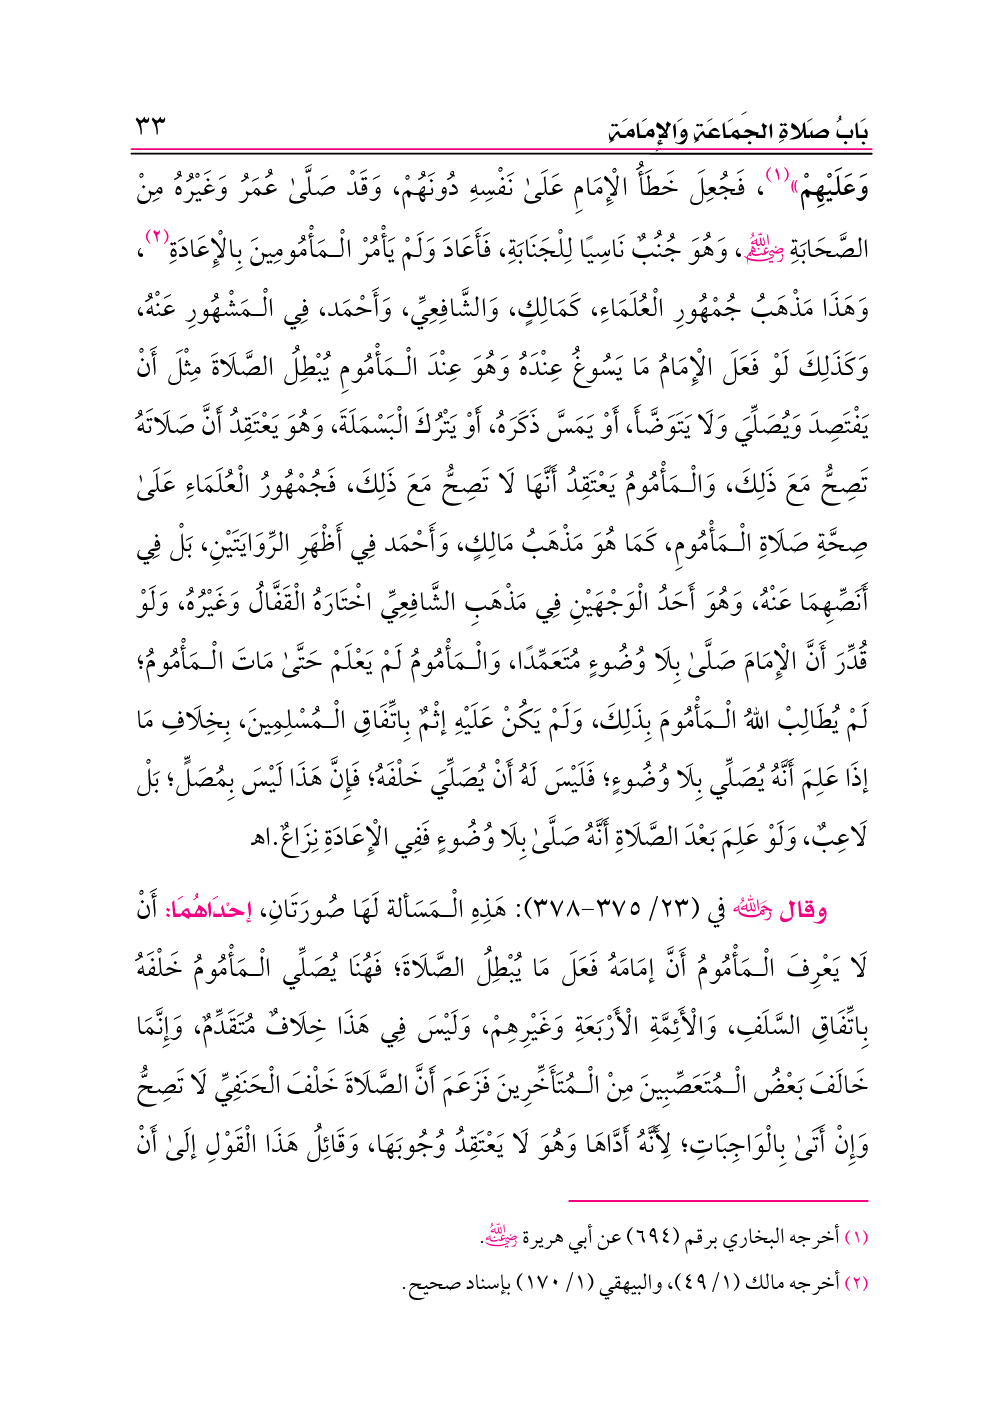 بَابُ صَلاةِ الجَمَاعَةِ وَالإِمَامَةِ ٣٣
وَعَلَيْهِمْ»(١)، فَجُعِلَ خَطَأُ الْإِمَامِ عَلَىٰ نَفْسِهِ دُونَهُمْ، وَقَدْ صَلَّىٰ عُمَرُ وَغَيْرُهُ مِنْ
الصَّحَابَةِ رضي الله عنهم، وَهُوَ جُنُبٌ نَاسِيًا لِلْجَنَابَةِ، فَأَعَادَ وَلَمْ يَأْمُرْ الْـمَأْمُومِينَ بِالْإِعَادَةِ(٢)،
وَهَذَا مَذْهَبُ جُمْهُورِ الْعُلَمَاءِ، كَمَالِكٍ، وَالشَّافِعِيِّ، وَأَحْمَد، فِي الْـمَشْهُورِ عَنْهُ،
وَكَذَلِكَ لَوْ فَعَلَ الْإِمَامُ مَا يَسُوغُ عِنْدَهُ وَهُوَ عِنْدَ الْـمَأْمُومِ يُبْطِلُ الصَّلَاةَ مِثْلَ أَنْ
يَفْتَصِدَ وَيُصَلِّيَ وَلَا يَتَوَضَّأَ، أَوْ يَمَسَّ ذَكَرَهُ، أَوْ يَتْرُكَ الْبَسْمَلَةَ، وَهُوَ يَعْتَقِدُ أَنَّ صَلَاتَهُ
تَصِحُّ مَعَ ذَلِكَ، وَالْـمَأْمُومُ يَعْتَقِدُ أَنَّهَا لَا تَصِحُّ مَعَ ذَلِكَ، فَجُمْهُورُ الْعُلَمَاءِ عَلَىٰ
صِحَّةِ صَلَاةِ الْـمَأْمُومِ، كَمَا هُوَ مَذْهَبُ مَالِكٍ، وَأَحْمَد فِي أَظْهَرِ الرِّوَايَتَيْنِ، بَلْ فِي
أَنَصِّهِمَا عَنْهُ، وَهُوَ أَحَدُ الْوَجْهَيْنِ فِي مَذْهَبِ الشَّافِعِيِّ اخْتَارَهُ الْقَفَّالُ وَغَيْرُهُ، وَلَوْ
قُدِّرَ أَنَّ الْإِمَامَ صَلَّىٰ بِلَا وُضُوءٍ مُتَعَمِّدًا، وَالْـمَأْمُومُ لَمْ يَعْلَمْ حَتَّىٰ مَاتَ الْـمَأْمُومُ؛
لَمْ يُطَالِبْ اللهُ الْـمَأْمُومَ بِذَلِكَ، وَلَمْ يَكُنْ عَلَيْهِ إثْمٌ بِاتِّفَاقِ الْـمُسْلِمِينَ، بِخِلَافِ مَا
إذَا عَلِمَ أَنَّهُ يُصَلِّي بِلَا وُضُوءٍ؛ فَلَيْسَ لَهُ أَنْ يُصَلِّيَ خَلْفَهُ؛ فَإِنَّ هَذَا لَيْسَ بِمُصَلٍّ؛ بَلْ
لَاعِبٌ، وَلَوْ عَلِمَ بَعْدَ الصَّلَاةِ أَنَّهُ صَلَّىٰ بِلَا وُضُوءٍ فَفِي الْإِعَادَةِ نِزَاعٌ.اهـ
وقال رحمه الله في (٢٣/ ٣٧٥-٣٧٨): هَذِهِ الْـمَسَألة لَهَا صُورَتَانِ، إحْدَاهُمَا: أَنْ
لَا يَعْرِفَ الْـمَأْمُومُ أَنَّ إمَامَهُ فَعَلَ مَا يُبْطِلُ الصَّلَاةَ؛ فَهُنَا يُصَلِّي الْـمَأْمُومُ خَلْفَهُ
بِاتِّفَاقِ السَّلَفِ، وَالْأَئِمَّةِ الْأَرْبَعَةِ وَغَيْرِهِمْ، وَلَيْسَ فِي هَذَا خِلَافٌ مُتَقَدِّمٌ، وَإِنَّمَا
خَالَفَ بَعْضُ الْـمُتَعَصِّبِينَ مِنْ الْـمُتَأَخِّرِينَ فَزَعَمَ أَنَّ الصَّلَاةَ خَلْفَ الْحَنَفِيِّ لَا تَصِحُّ
وَإِنْ أَتَىٰ بِالْوَاجِبَاتِ؛ لِأَنَّهُ أَدَّاهَا وَهُوَ لَا يَعْتَقِدُ وُجُوبَهَا، وَقَائِلُ هَذَا الْقَوْلِ إلَىٰ أَنْ
(١) أخرجه البخاري برقم (٦٩٤) عن أبي هريرة رضي الله عنه.
(٢) أخرجه مالك (١/ ٤٩)، والبيهقي (١/ ١٧٠) بإسناد صحيح.